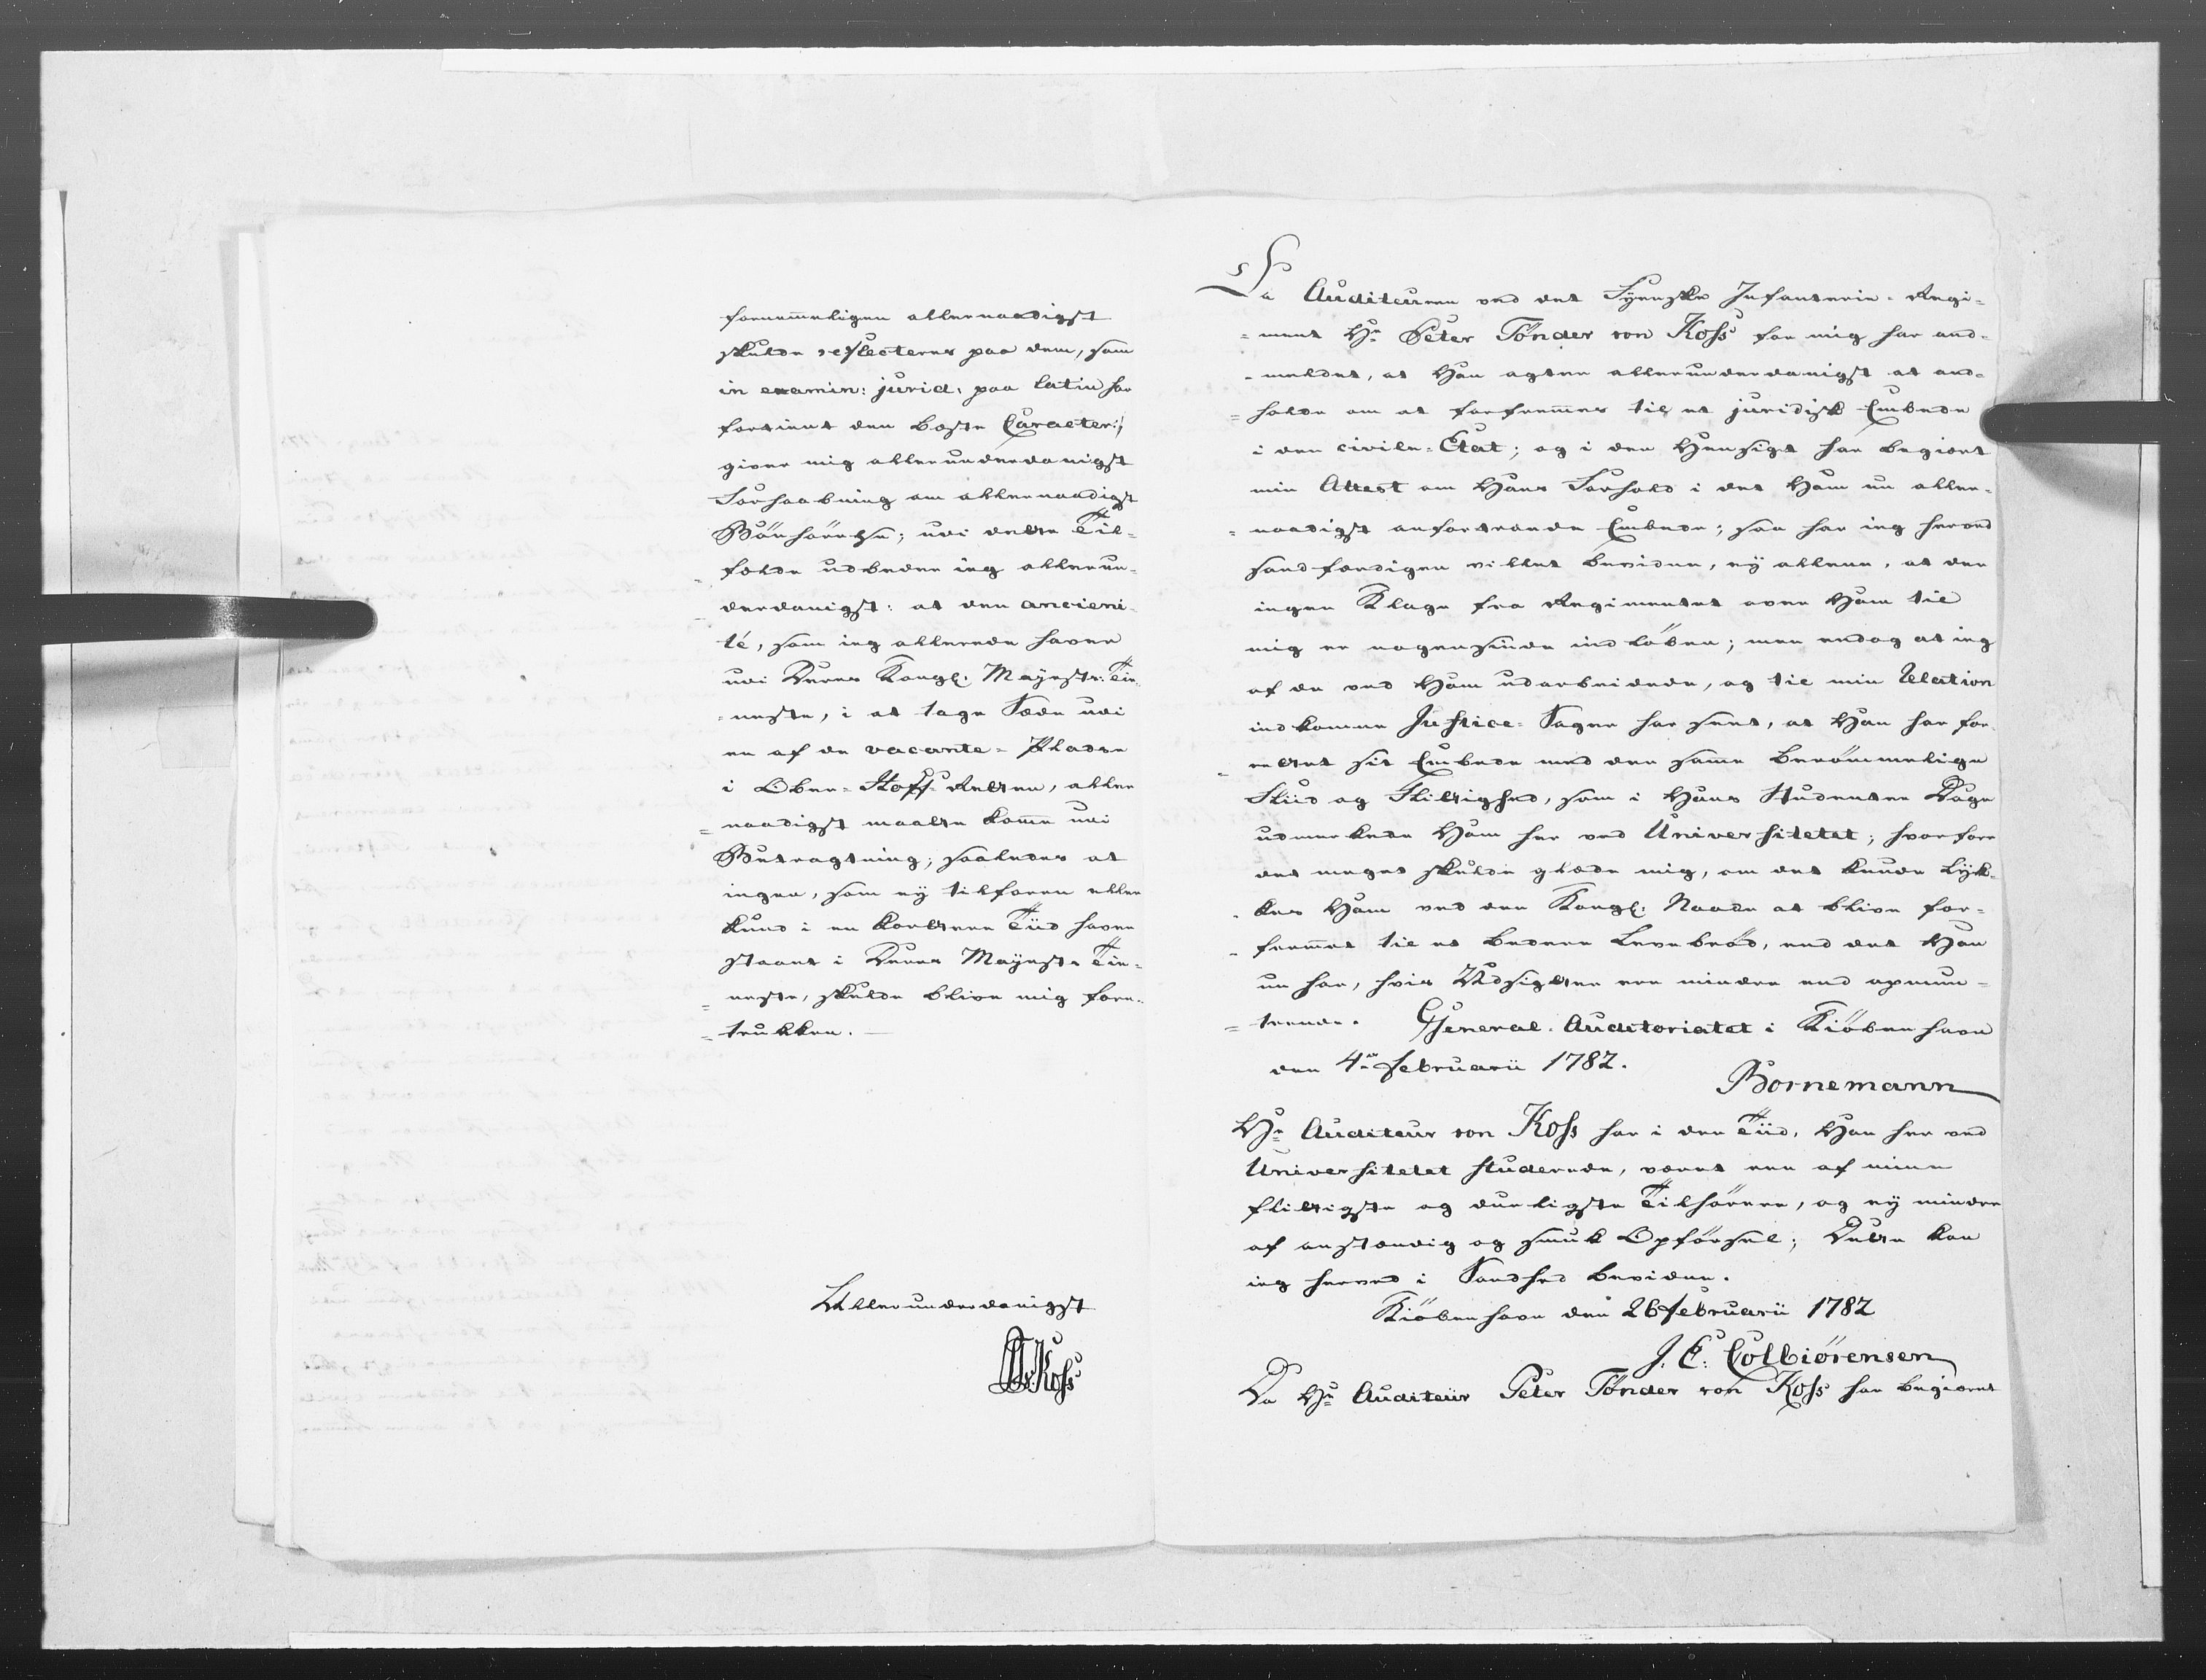 fornemmeligen allernaadigst
skulde reflecteres paa dem, som
in examin: jurid: paa latin har
fortient den beste Caracter:/
giver mig allerunderdanigst
Forhaabning om allernaadigst
Bönhörelse; udi dette Til-
fælde udbeder ieg allerun-
derdanigst: at den ancieni-
té, som ieg allerede haver
udi Deres Kongl: Mayest: Tie-
=neste, i at tage Sæde udi
en af de vacante-Pladse
i Ober-Hoff-Retten, aller
=naadigst maatte komme udi
Betragtning; saaledes at
ingen, som ej tilforn eller
kund i en kortere Tiid haver
staaet i Deres Mayest: Tie-
=neste, skulde blive mig fore-
=trukken. —
Allerunderdanigst
PTvKoss
Da Auditeuren ved det Fyenske Infanterie-Regi-
=ment Hr Peter Tönder von Koss for mig har and-
=meldet, at Han agter allerunderdanigst at and-
=holde om at forfremmes til et juridisk Embede
i den civile-Etat; og i den Hensigt har begiert
min Attest om Hans Forhold i det Ham nu aller-
=naadigst anfortroede Embede; saa har ieg herved
sandfærdigen villet bevidne, ej allene, at der
ingen Klage fra Regimentet over Ham til
mig er nogensinde indlöben; men endog at ieg
af de ved Ham udarbeidede, og til min Relation
indkomne Justice-Sager har seet, at Han har for-
=rettet sit Embede med den samme berömmelige
Fliid og Flittighed, som i Hans Studenter Dage
udmerkede Ham her ved Universitetet; hvorfore
det meget skulde glæde mig, om det kunde lyk-
=kes Ham ved den Kongl: Naade at blive for-
=fremmet til et bedere Levebröd, end det Han
nu har, hvis Udsigter ere mindre end opmun-
=trende. General-Auditoriatet i Kiöbenhavn
den 4de Februarii 1782.
Bornemann
Hr Auditeur von Koss har i den Tiid, Han her ved
Universitetet studerede, været een af mine
flittigste og dueligste Tilhörere, og ej mindre
af anstændig og smuk Opförsel; Dette kan
ieg herved i Sandhed bevidne.
Kiöbenhavn den 26 Februarii 1782
J. E: Colbiörensen
Da Hr Auditeur Peter Tönder von Koss har begieret